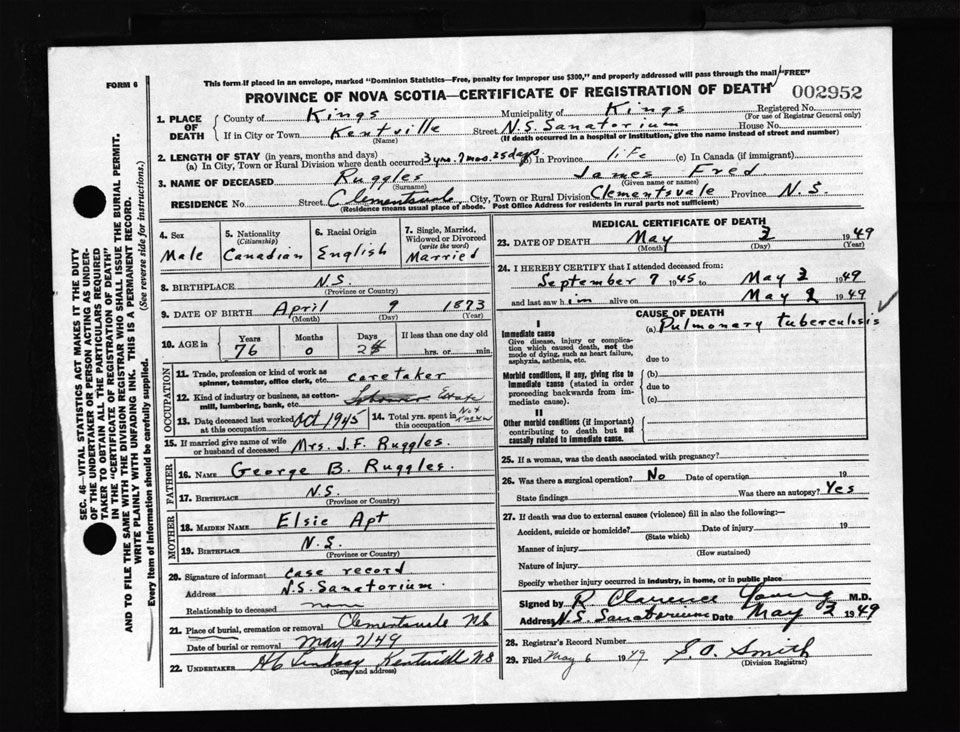 This form if placed in an envelope, marked "Dominion Statistics—Free, penalty for improper use $300," and properly addressed will pass through the mail "FREE"
FORM 6
PROVINCE OF NOVA SCOTIA—CERTIFICATE OF REGISTRATION OF DEATH 002952
1. PLACE OF DEATH
County of Kings Municipality of Kings Registered No.
(For use of Registrar General only)
If in City or Town Kentville Street N.S. Sanatorium House No.
(Name) (If death occurred in a hospital or institution, give the name instead of street and number)
2. LENGTH OF STAY (in years, months and days)
(a) In City, Town or Rural Division where death occurred 3 yrs. 7 mos. 25 days (b) In Province life (c) In Canada (if immigrant)
3. NAME OF DECEASED Ruggles James Fred.
(Surname) (Given name or names)
RESIDENCE No. Street City, Town or Rural Division Clementsvale Province N.S.
(Residence means usual place of abode. Post Office Address for residents in rural parts not sufficient)
4. Sex
Male
5. Nationality
(Citizenship)
Canadian
6. Racial Origin
English
7. Single, Married, Widowed or Divorced
(write the word)
Married
8. BIRTHPLACE N.S.
(Province or Country)
9. DATE OF BIRTH April 9 1873
(Month) (Day) (Year)
10. AGE in Years Months Days If less than one day old
76 0 hrs. or min.
OCCUPATION
11. Trade, profession or kind of work as spinner, teamster, office clerk, etc. caretaker
12. Kind of industry or business, as cotton-mill, lumbering, bank, etc.
13. Date deceased last worked at this occupation Oct 1945
14. Total yrs. spent in this occupation Not Known
15. If married give name of wife or husband of deceased Mrs. J.F. Ruggles.
FATHER
16. NAME George B. Ruggles.
17. BIRTHPLACE N.S.
(Province or Country)
MOTHER
18. MAIDEN NAME Elsie Apt
19. BIRTHPLACE N.S.
(Province or Country)
20. Signature of informant case record
Address N.S. Sanatorium.
Relationship to deceased none
21. Place of burial, cremation or removal Clementsvale NS
Date of burial or removal May
22. UNDERTAKER Lindsay Kentville N S
(Name and address)
MEDICAL CERTIFICATE OF DEATH
23. DATE OF DEATH May 1949
(Month) (Day) (Year)
24. I HEREBY CERTIFY that I attended deceased from:
September 7 1945 to May 1949
and last saw him alive on May 1949
CAUSE OF DEATH
I
Immediate cause
Give disease, injury or complication which caused death, not the mode of dying, such as heart failure, asphyxia, asthenia, etc.
(a) Pulmonary tuberculosis
due to
Morbid conditions, if any, giving rise to immediate cause (stated in order proceeding backwards from immediate cause).
(b)
due to
(c)
II
Other morbid conditions (if important) contributing to death but not causally related to immediate cause.
25. If a woman, was the death associated with pregnancy?
26. Was there a surgical operation? No Date of operation 19
State findings Was there an autopsy? Yes
27. If death was due to external causes (violence) fill in also the following:—
Accident, suicide or homicide? Date of injury 19
(State which)
Manner of injury
(How sustained)
Nature of injury
Specify whether injury occurred in industry, in home, or in public place
Signed by R. Clarence Young M.D.
Address N.S. Sanatorium Date May 1949
28. Registrar's Record Number
29. Filed May 6 1949 S.O. Smith
(Division Registrar)
SEC. 46—VITAL STATISTICS ACT MAKES IT THE DUTY
OF THE UNDERTAKER OR PERSON ACTING AS UNDER-
TAKER TO OBTAIN ALL THE PARTICULARS REQUIRED
IN THE "CERTIFICATE OF REGISTRATION OF DEATH"
AND TO FILE THE SAME WITH THE DIVISION REGISTRAR WHO SHALL ISSUE THE BURIAL PERMIT.
WRITE PLAINLY WITH UNFADING INK. THIS IS A PERMANENT RECORD.
Every item of information should be carefully supplied. (See reverse side for instructions.)